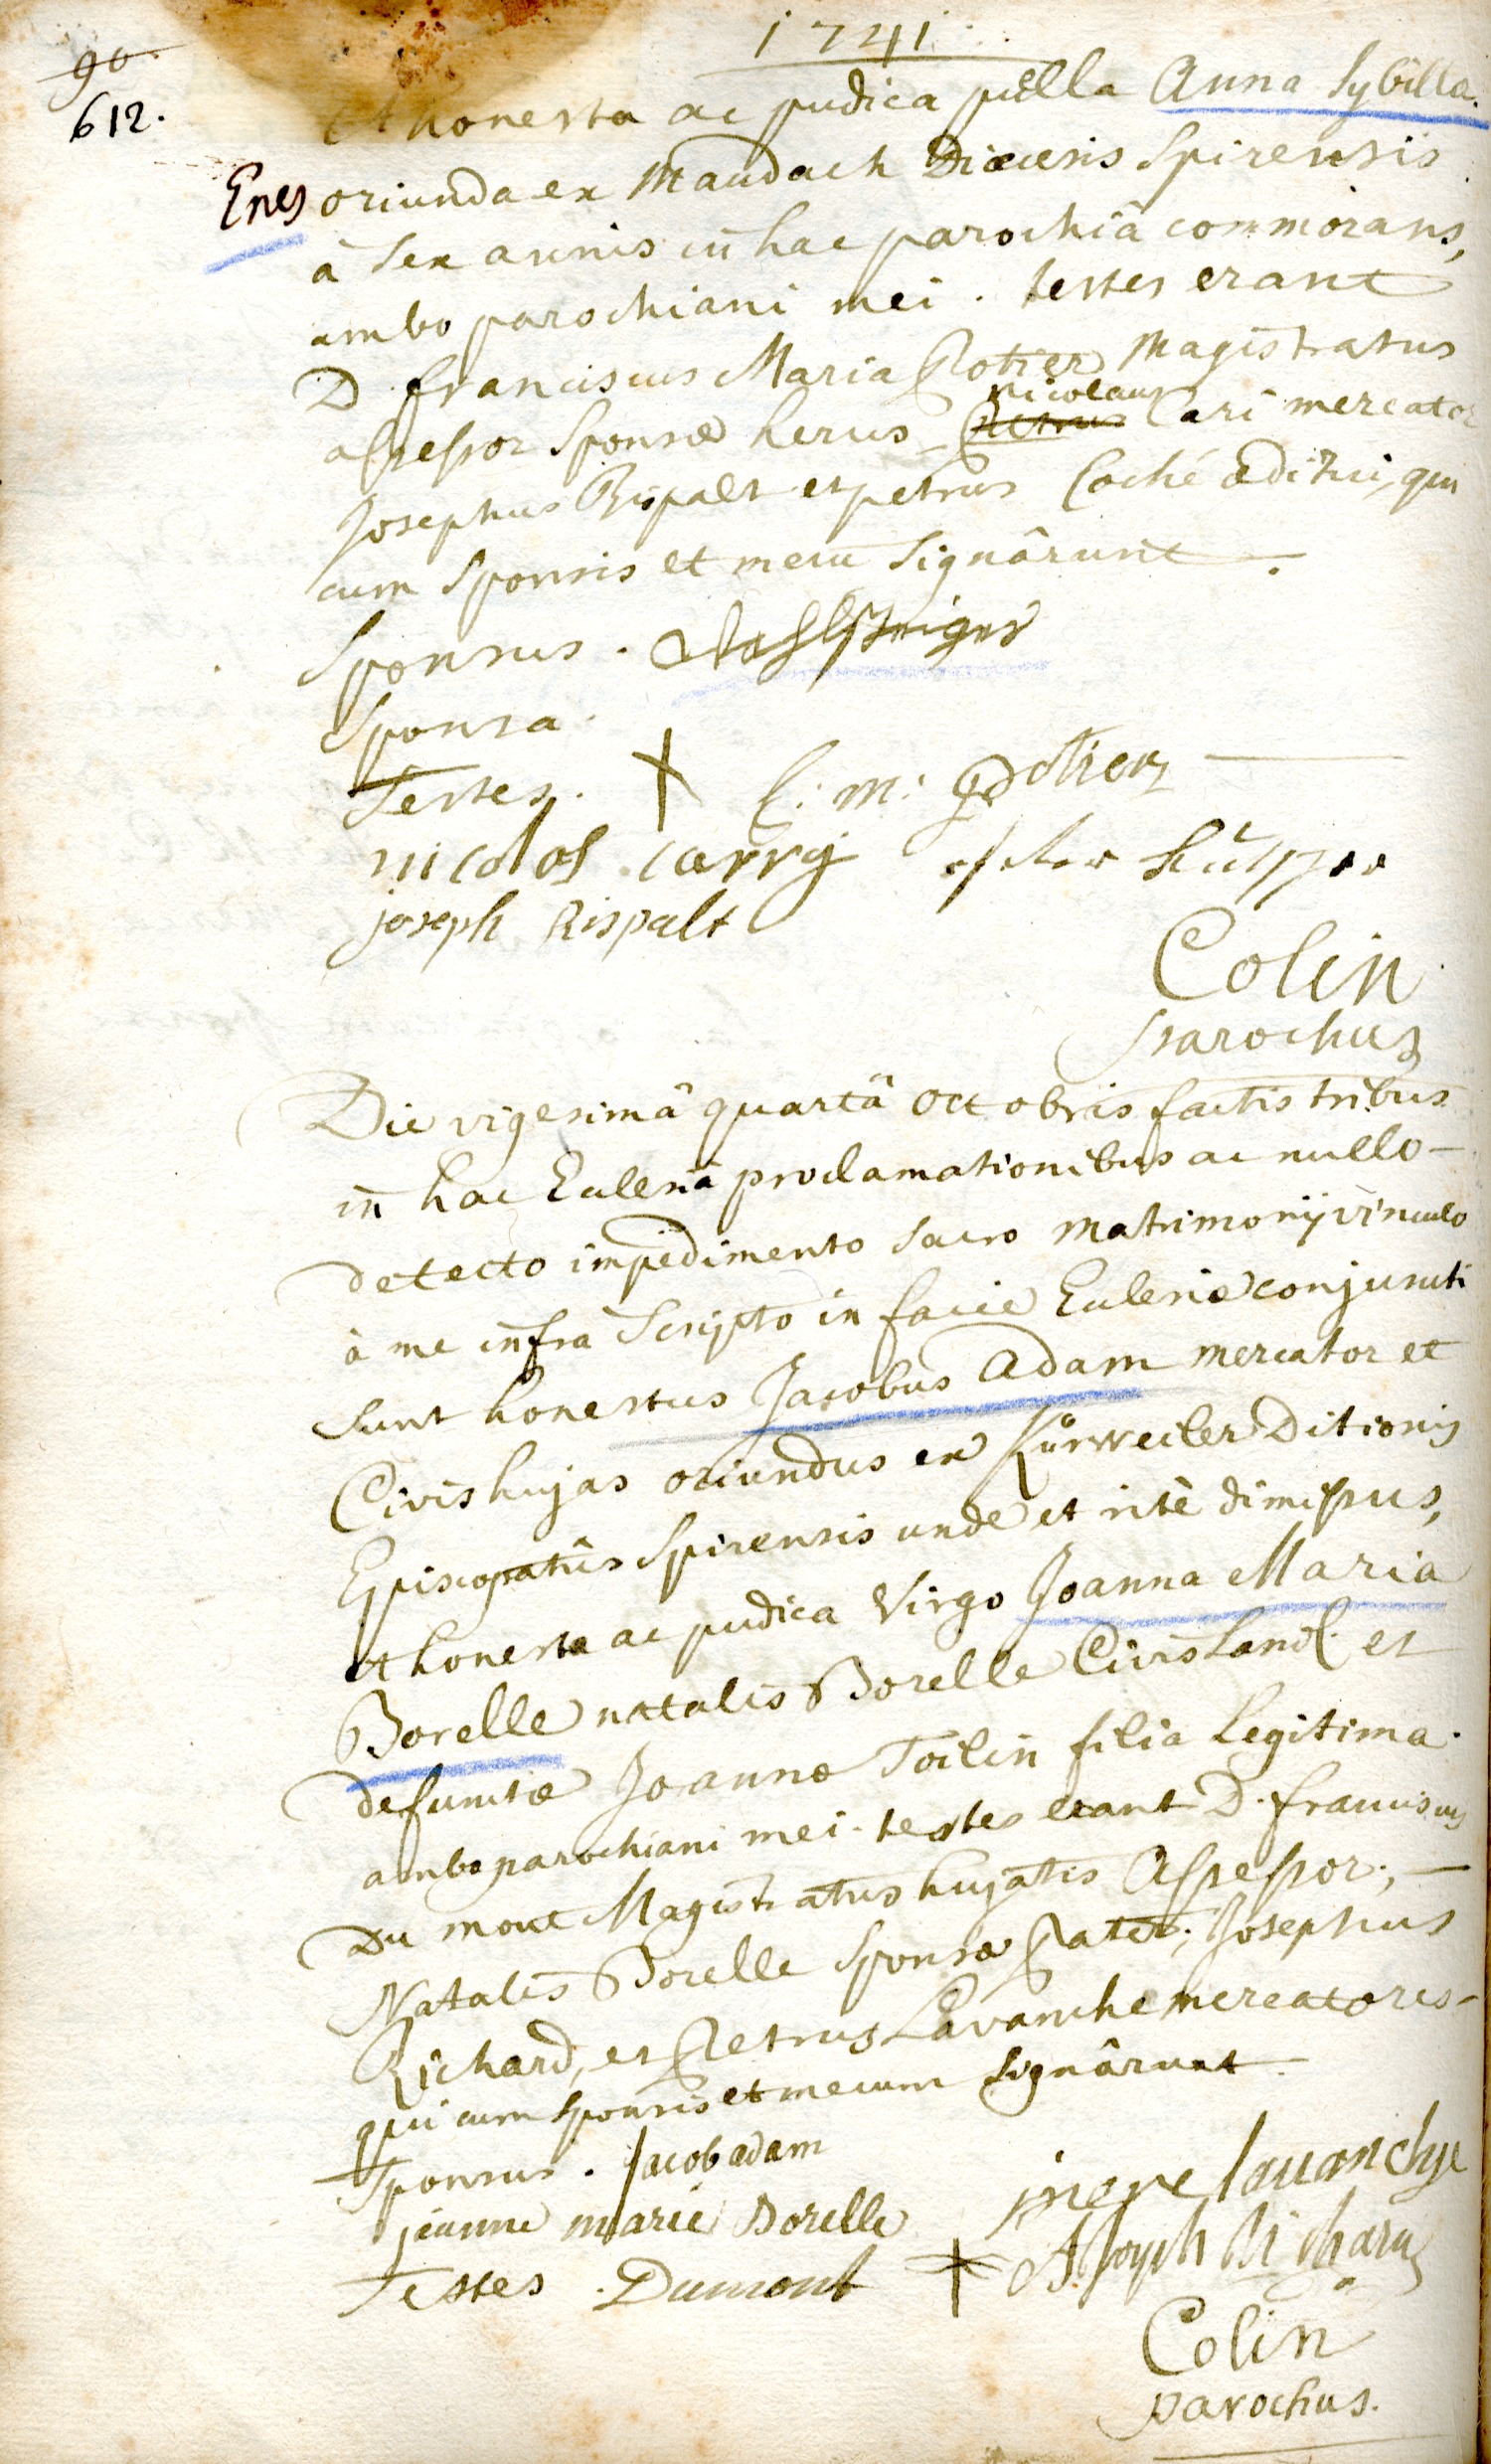 1741
90
612.
et honesta ac pudica puella Anna Sybilla
Enes oriunda ex Maudach Diœcesis Spirensis
à sex annis in hac parochiâ commorans,
ambo parochiani mei. testes erant
D. franciscus Maria Potier Magistratus
assessor Sponsæ herus, Petrus Nicolaus Cari mercator
Josephus Rispalt et petrus Coché æditui, qui
cum Sponsis et mecu Signârunt.
Sponsus.
Sponsa.
Testes. X f: m: Potier
nicolos carry
joseph Rispalt
Colin
parochus
Die vigesimâ quartâ octobris factis tribus
in hac Ecclesiâ proclamationibus ac nullo
detecto impedimento Sacro Matrimonij vinculo
à me infra Scripto in facie Ecclesiæ conjuncti
sunt honestus Jacobus Adam mercator et
Civis hujas oriundus ex Kürweiler Ditionis
Episcopatûs Spirensis unde et ritè dimissus,
et honesta ac pudica Virgo Joanna Maria
Borelle natalis Borelle Civis Land. et
defunctæ Joannæ Toilin filia Legitima.
ambo parochiani mei. testes erant D. franciscus
Du mont Magistratus hujatis Assessor;
Natalis Borelle Sponsæ Pater; Josephus
Richard, et Petrus Lavanche mercatores
qui cum sponsis et mecum Signârunt.
Sponsus. Jacob adam
jeanne marie Borelle
pierre lavanchye
Testes. Dumont X A Joseph Richard
Colin
parochus.